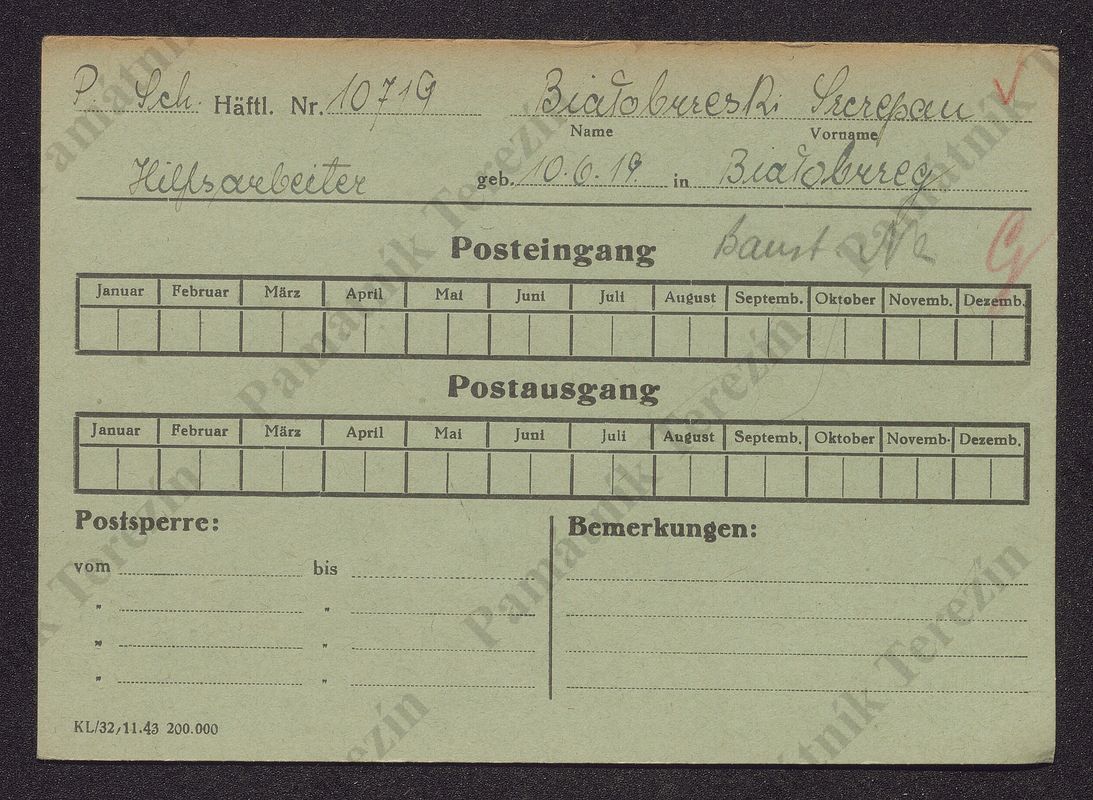 P. Sch. Häftl. Nr. 10719 Białobrzeski Szczepan
Name Vorname
Hilfsarbeiter geb. 10.6.19. in Białobrzeg
Posteingang
Januar Februar März April Mai Juni Juli August Septemb. Oktober Novemb. Dezemb.
Postausgang
Januar Februar März April Mai Juni Juli August Septemb. Oktober Novemb. Dezemb.
Postsperre: Bemerkungen:
vom bis
" "
" "
" "
KL/32, 11.43 200.000
Památník Terezín